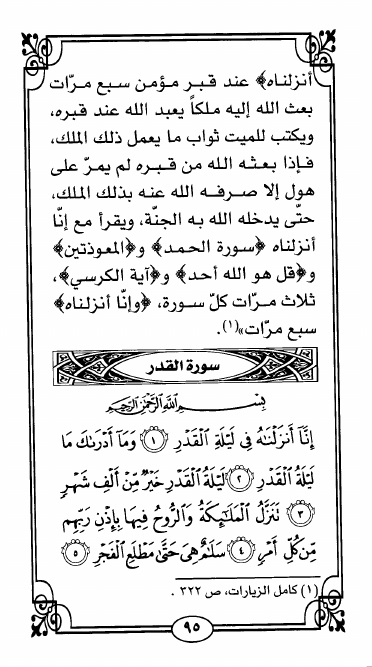 أنزلناه﴾ عند قبر مؤمن سبع مرّات
بعث الله إليه ملكاً يعبد الله عند قبره،
ويكتب للميت ثواب ما يعمل ذلك الملك،
فإذا بعثه الله من قبره لم يمرّ على
هول إلا صرفه الله عنه بذلك الملك،
حتّى يدخله الله به الجنّة، ويقرأ مع إنّا
أنزلناه ﴿سورة الحمد﴾ و﴿المعوذتين﴾
و﴿قل هو الله أحد﴾ و﴿آية الكرسي﴾،
ثلاث مرّات كلّ سورة، ﴿وإنّا أنزلناه﴾
سبع مرّات»(١).
سورة القدر
بِسْمِ اللَّهِ الرَّحْمَٰنِ الرَّحِيمِ
إِنَّا أَنزَلْنَاهُ فِي لَيْلَةِ الْقَدْرِ ۝١ وَمَا أَدْرَاكَ مَا
لَيْلَةُ الْقَدْرِ ۝٢ لَيْلَةُ الْقَدْرِ خَيْرٌ مِّنْ أَلْفِ شَهْرٍ
۝٣ تَنَزَّلُ الْمَلَائِكَةُ وَالرُّوحُ فِيهَا بِإِذْنِ رَبِّهِم
مِّن كُلِّ أَمْرٍ ۝٤ سَلَامٌ هِيَ حَتَّىٰ مَطْلَعِ الْفَجْرِ ۝٥
(١) كامل الزيارات، ص ٣٢٢ .
٩٥